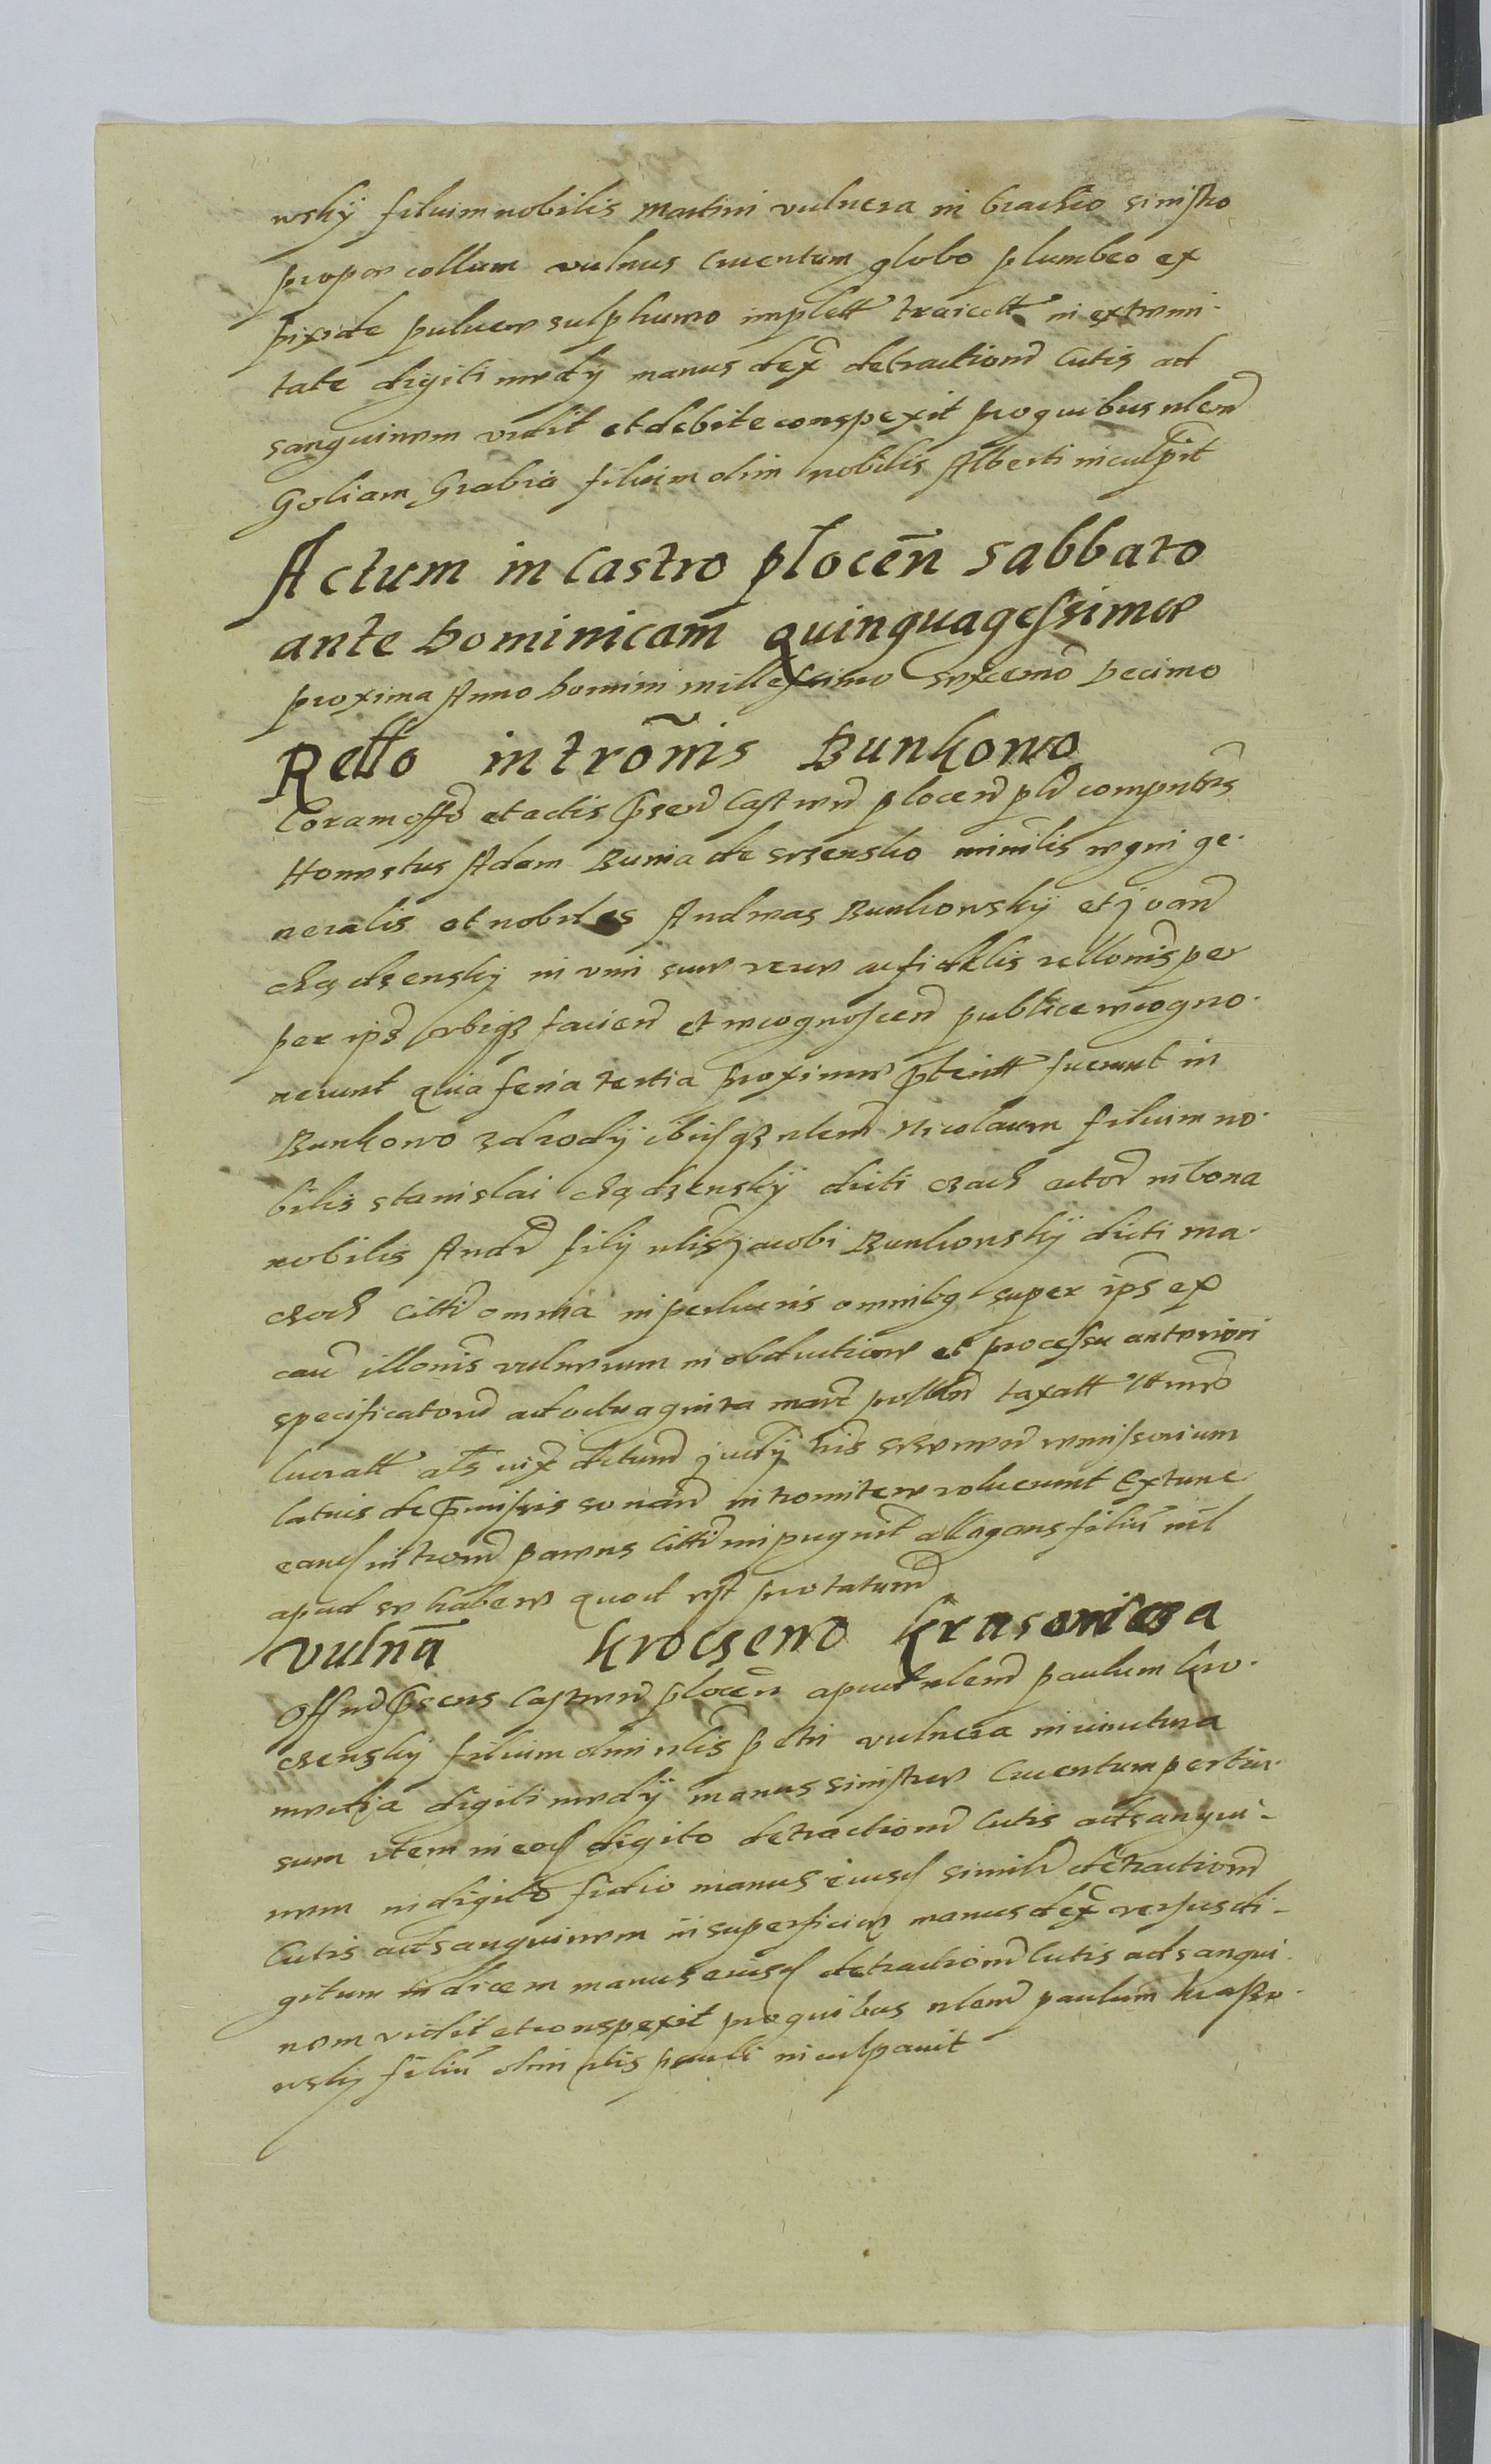 wskÿ filium nobilis Martini vulnera in brachio sinistro
prope collum vulnus cruentum globo plumbeo ex
pixide pulvere sulphureo implett traiectt in extremi-
tate digiti medÿ manus dex detractione cutis ad
sanguinem vidit et debite conspexit pro quibus nlem
Goliam Grabia filium olim nobilis Alberti inculpit
Actum in Castro plocen Sabbato
ante Dominicam quinquagessimae
proxima Anno Domini millessimo sexcemo Decimo
Rello intromis Bunkowo
Coram offo et actis psen Castren plocen pli computrs
Honestus Adam Bunia de mintlis regni ge-
neralis et nobiles Andreas Bunkowskÿ et Joan
Chądzenskÿ in vim sue vere ac fidelis rellonis per
per ips facien et recognoscen publice recogno-
verunt quia feria tertia proxime pteritt fuerunt in
Bunkowo zdrodÿ ibiqz nlem Nicolaum filium no-
bilis Stanislai Chądzenskÿ dicti actor in bona
nobilis And filÿ nlis Jacobi Bunkowskÿ dicti ma-
citti omnia in peccuniis omnibq super ips ex
cau illonis vulnerum in obductione et processu anteriori
specificator ad octuaginta marc pollon taxatt
lucratt als vix judÿ
latius de pmissis sonan intromitere voluerunt Extunc
eand introm parens citti impugnit allegans filiu nil
apud se habere quod est protatum
Vulna Krocsewo Krasowicza
Off psens Castren plocen apud nlem paulum Kro-
czenskÿ filium olim nlis petri vulnera in iunctura
media digiti medÿ manus sinistre cruentum pertu-
sum item in eod digito detractione cutis ad sangui-
nem in digito manus eiusd simile detractione
Cutis ad sanguinem in superficie manus dex versus di-
gitum indicem manus eiusd detractione cutis ad sangui-
nem vidit et conspexit pro quibus nlem paulum Kraszo-
wskÿ filiu olim nlis pauli inculpavit